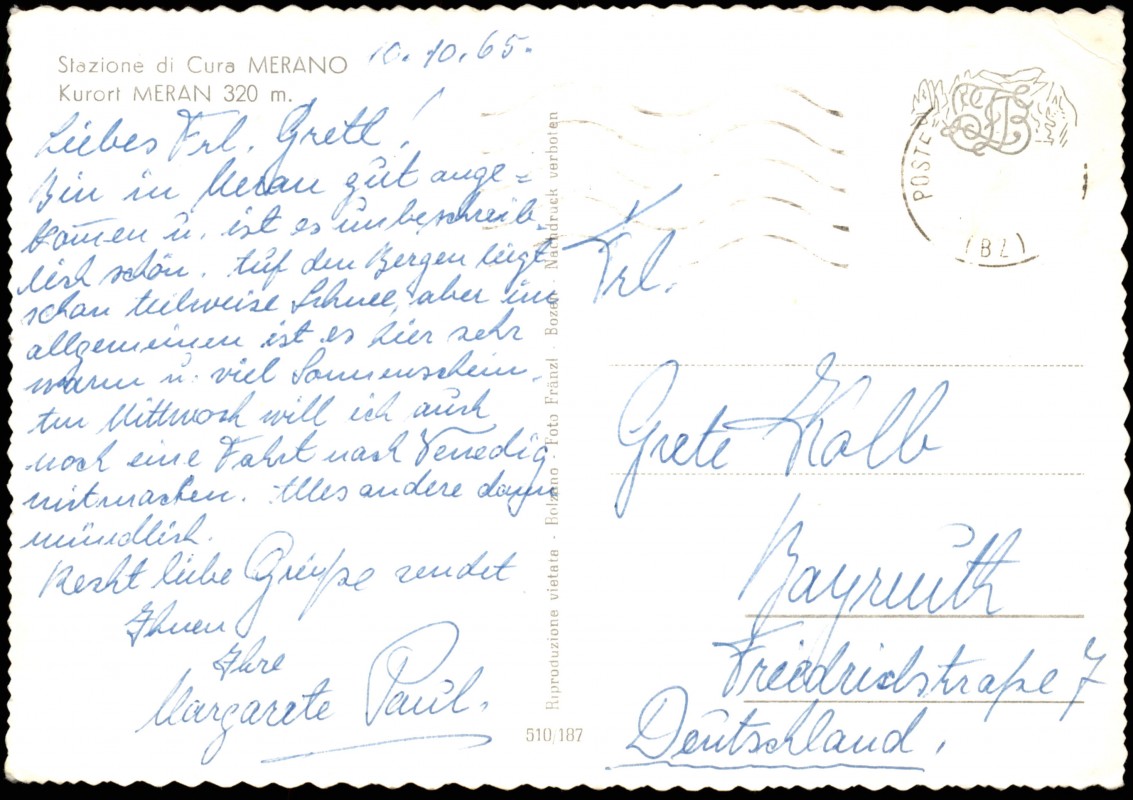 Stazione di Cura MERANO
Kurort MERAN 320 m.
10.10.65.
Liebes Frl. Gretl!
Bin in Meran gut ange=
kom̄en u. ist es unbeschreib-
lich schön. Auf den Bergen liegt
schon teilweise Schnee, aber im
allgemeinen ist es hier sehr
warm u. viel Sonnenschein.
Am Mittwoch will ich auch
noch eine Fahrt nach Venedig
mitmachen. Alles andere dann
mündlich.
Recht liebe Grüße sendet
Ihnen
Ihre
Margarete Paul.
Riproduzione vietata - Bolzano - Foto Fränzl - Bozen - Nachdruck verboten
510/187
POSTE
(BZ)
Frl.
Grete Kolb
Bayreuth
Friedrichstraße 7
Deutschland.